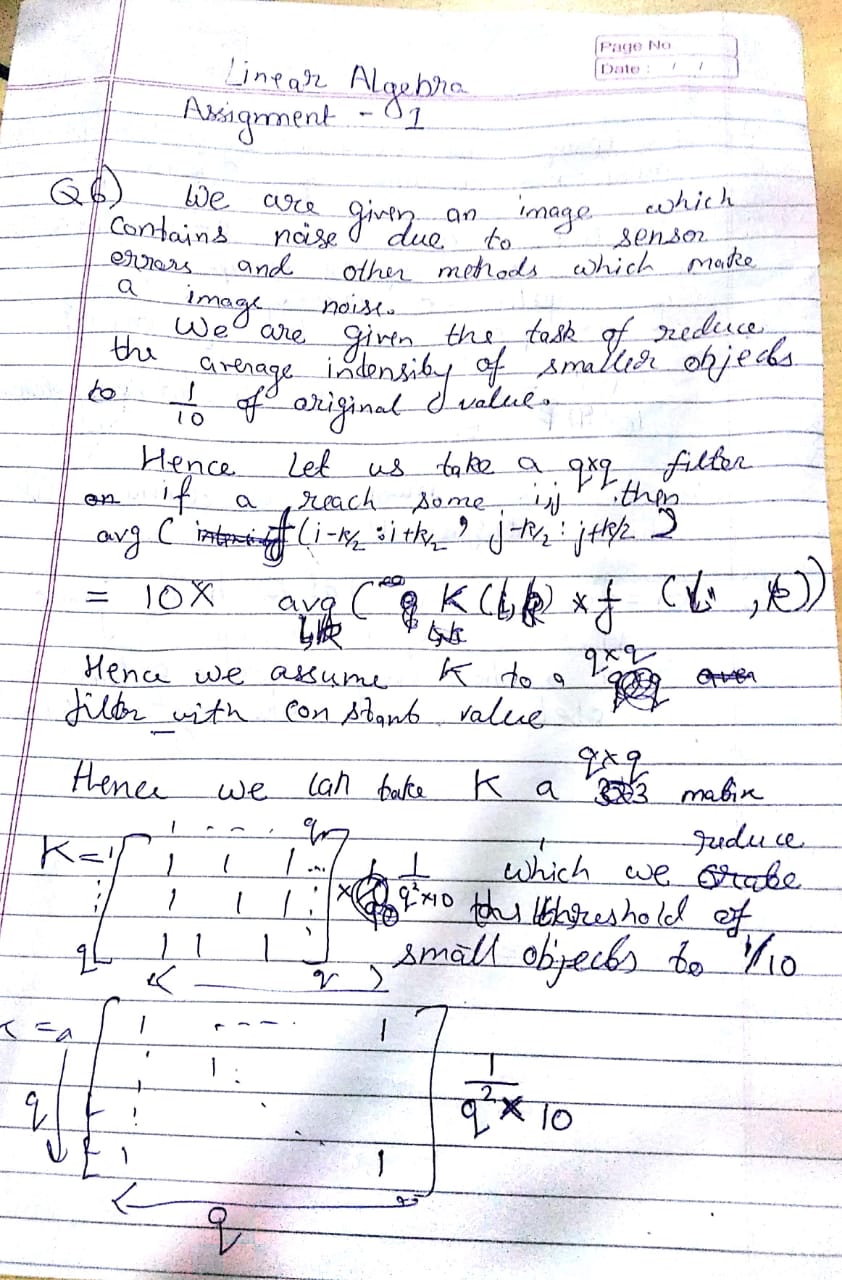 Page No
Date : / /
Linear Algebra
Assignment - 1
Q6) We are given an image which
contains noise due to sensor
errors and other methods which make
a image noise.
We are given the task of reduce
the average indensity of smaller objects
to 1/10 of original value.
Hence Let us take a q×q filter
if a reach some i,j then
avg ( f (i-k/2 : i+k/2 , j-k/2 : j+k/2 )
= 10 × avg ( K ( ) × f ( ))
Hence we assume K to a q×q
filter with constant value
Hence we can take K a q×q matrix
K = 1 [ 1 - - - - q
1 1 1 ... ] × 1/q²×10 which we reduce
1 1 1 : the threshold of
q 1 1 1 small objects to 1/10
q
= [ 1 - - - - 1
1 :
q 1/q² × 10
1 1 ]
q